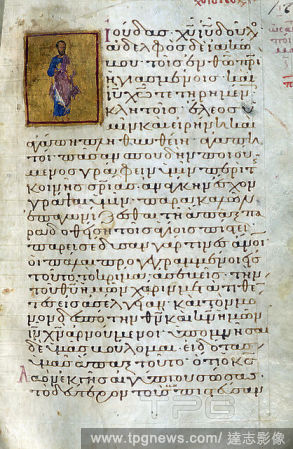 Ἰούδας χυ ιυ δουλ
ἀδελφὸς δὲ ἰακώ
τοῖς ἐν θω πρι
ἡγιασμένοις καὶ
ιυ χω τετηρημεν
κλητοῖς· ἔλεος
ὑμῖν καὶ εἰρήνη καὶ
ἀγάπη πληθυνθείη· ἀγαπη
τοὶ πᾶσαν σπουδὴν ποιού
μενος γράφειν ὑμῖν περὶ τ
κοινῆς σριας ἀνάγκην ἔσχον
γράψαι ὑμῖν παρακαλῶν
ἐπαγωνίζεσθαι τῇ ἅπαξ πα
ραδοθείσῃ τοῖς ἁγίοις πίστει·
παρεισέδυσαν γάρ τινες ανοι
οἱ πάλαι προγεγραμμένοι εἰς
τοῦτο τὸ κρίμα ἀσεβεῖς· τὴν
τοῦ θυ ἡμῶν χάριν μετατιθέ
τες εἰς ἀσέλγειαν· καὶ τὸν μό
νον δεσπότην θν καὶ κν ἡμῶν
ιν χν ἀρνούμενοι· ὑπομνῆσαι
δὲ ὑμᾶς βούλομαι εἰδότας
ὑμᾶς ἅπαξ τοῦτο· ὅτι ὁ κς
λαὸν ἐκ γῆς αἰγύπτου σώσας
τὸ δεύτερον τοὺς μὴ πιστεύσαν
TPG
www.tpgnews.com / 達志影像